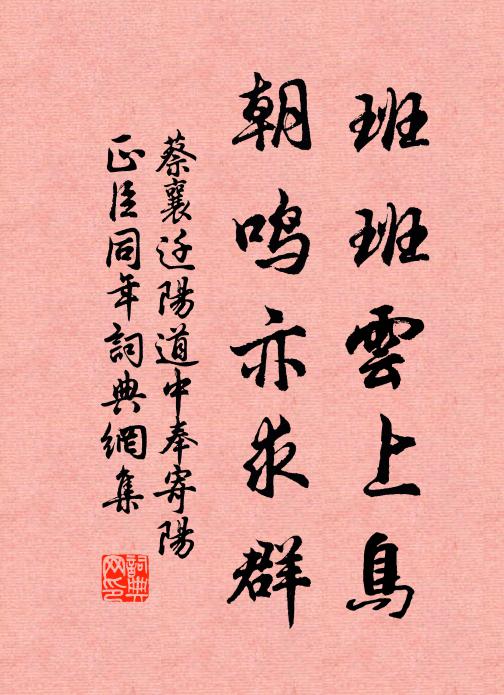 班班雲上鳥
朝鸣亦求群
蔡襄迁陽道中奉寄陽
正臣同年詞典網集
詞典網印